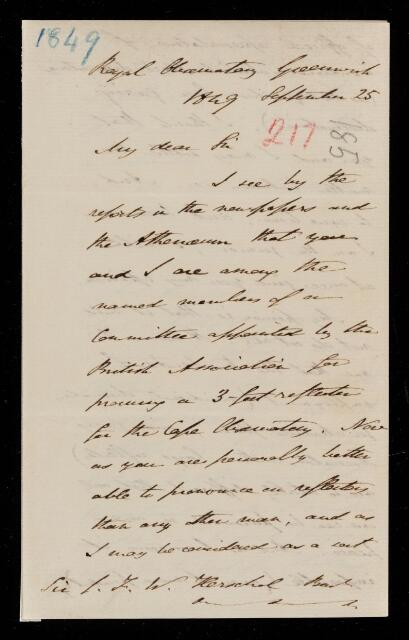 1849
Royal Observatory Greenwich
1849 September 25
217
185
My dear Sir
I see by the
reports in the newspapers and
the Athenæum that you
and I are among the
named members of a
Committee appointed by the
British Association for
procuring a 3-foot reflector
for the Cape Observatory. Now
as you are personally better
able to pronounce on reflectors
than any other man, and as
I may be considered as a sort
Sir J. F. W. Herschel Bart